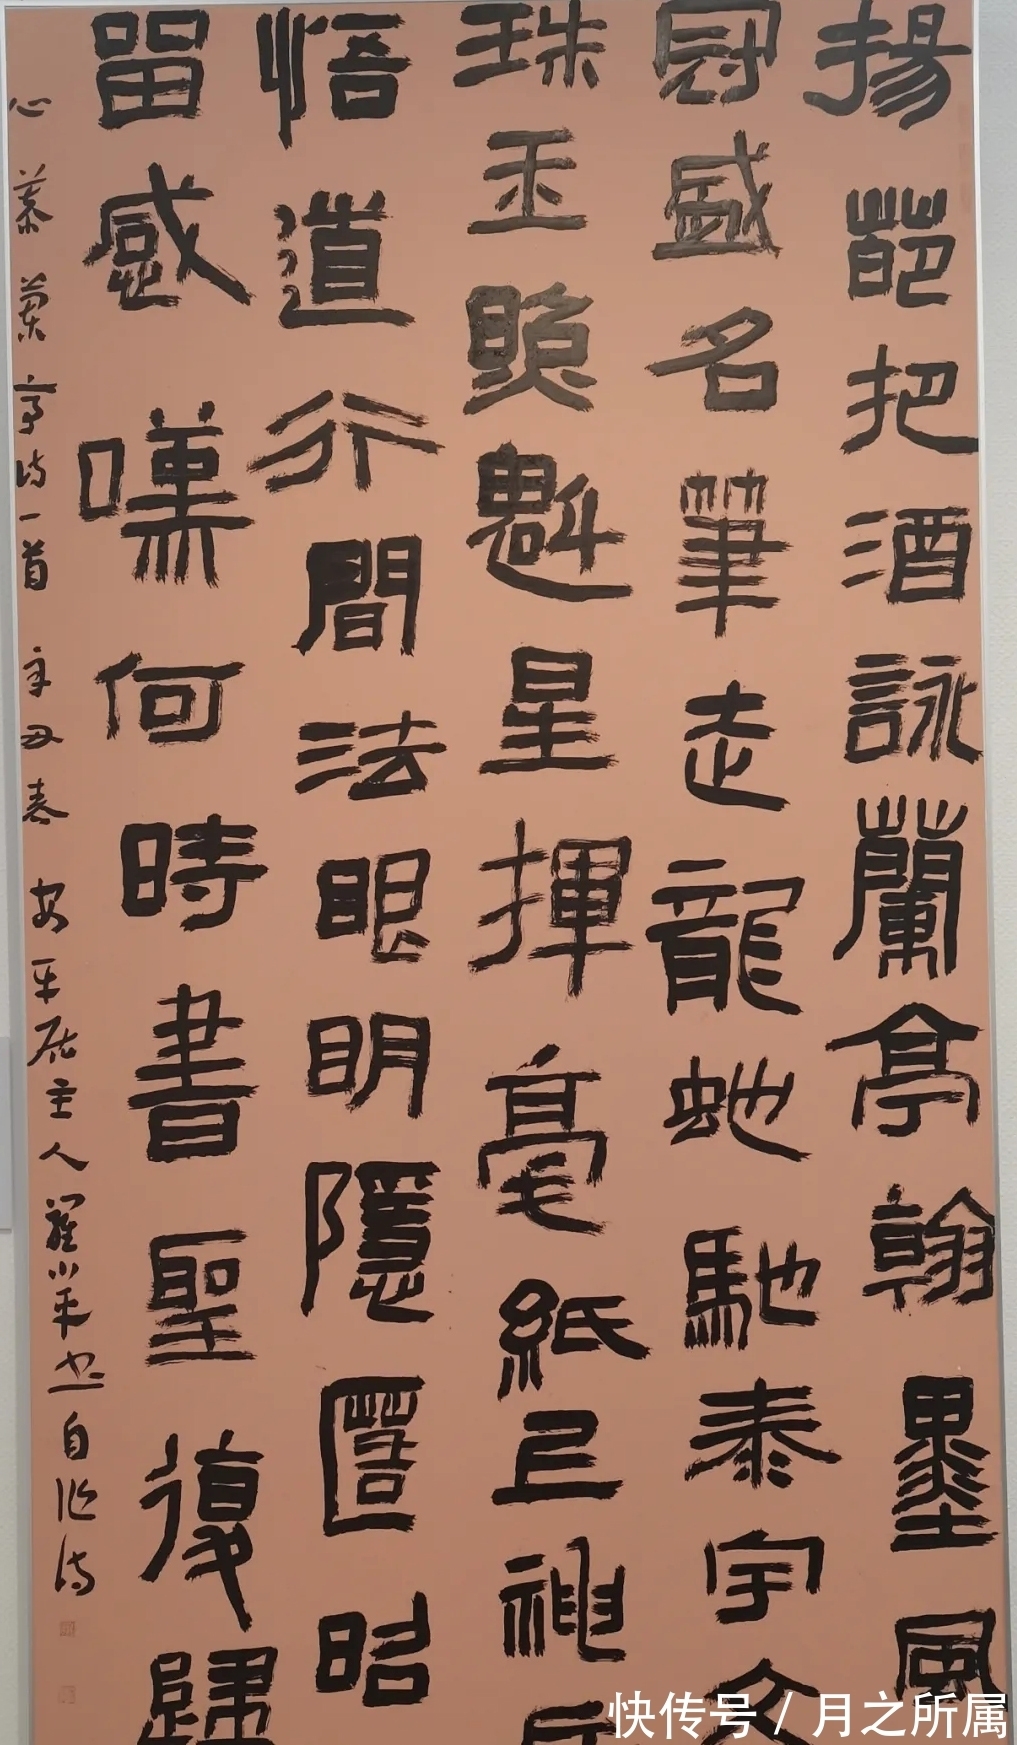 揚葩把酒詠蘭亭翰墨風
冠盛名筆走龍虵馳泰宇文
珠玉顯魁星揮毫紙上神
悟道行間法眼明隱匿昭
留感嘆何時書聖復歸
心慕蘭亭詩一首 辛丑春 安平居主人 小平書自作詩
快传号 / 月之所属